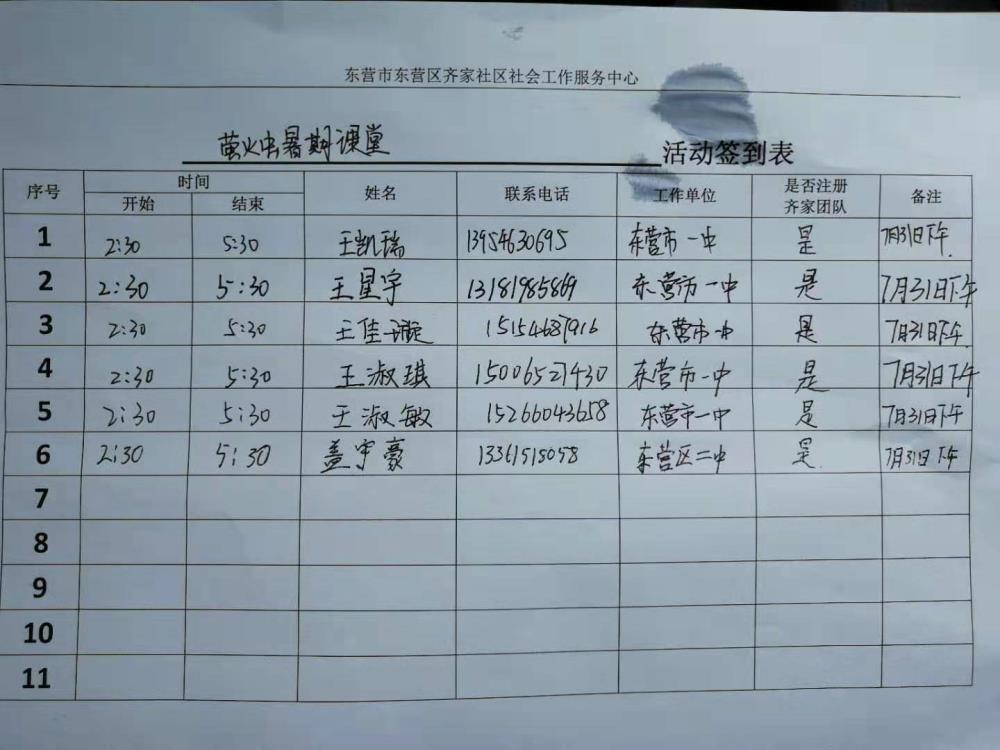 东营市东营区齐家社区社会工作服务中心
萤火虫暑期课堂 活动签到表
序号 时间 姓名 联系电话 工作单位 是否注册 备注
开始 结束 齐家团队
1 2:30 5:30 王凯瑞 13954630695 东营市一中 是 7月31日下午
2 2:30 5:30 王星宇 13181985869 东营市一中 是 7月31日下午
3 2:30 5:30 王佳璇 15154687916 东营市一中 是 7月31日下午
4 2:30 5:30 王淑琪 15006527430 东营市一中 是 7月31日下午
5 2:30 5:30 王淑敏 15266043658 东营市一中 是 7月31日下午
6 2:30 5:30 盖宇豪 东营区二中 是 7月31日下午
7
8
9
10
11